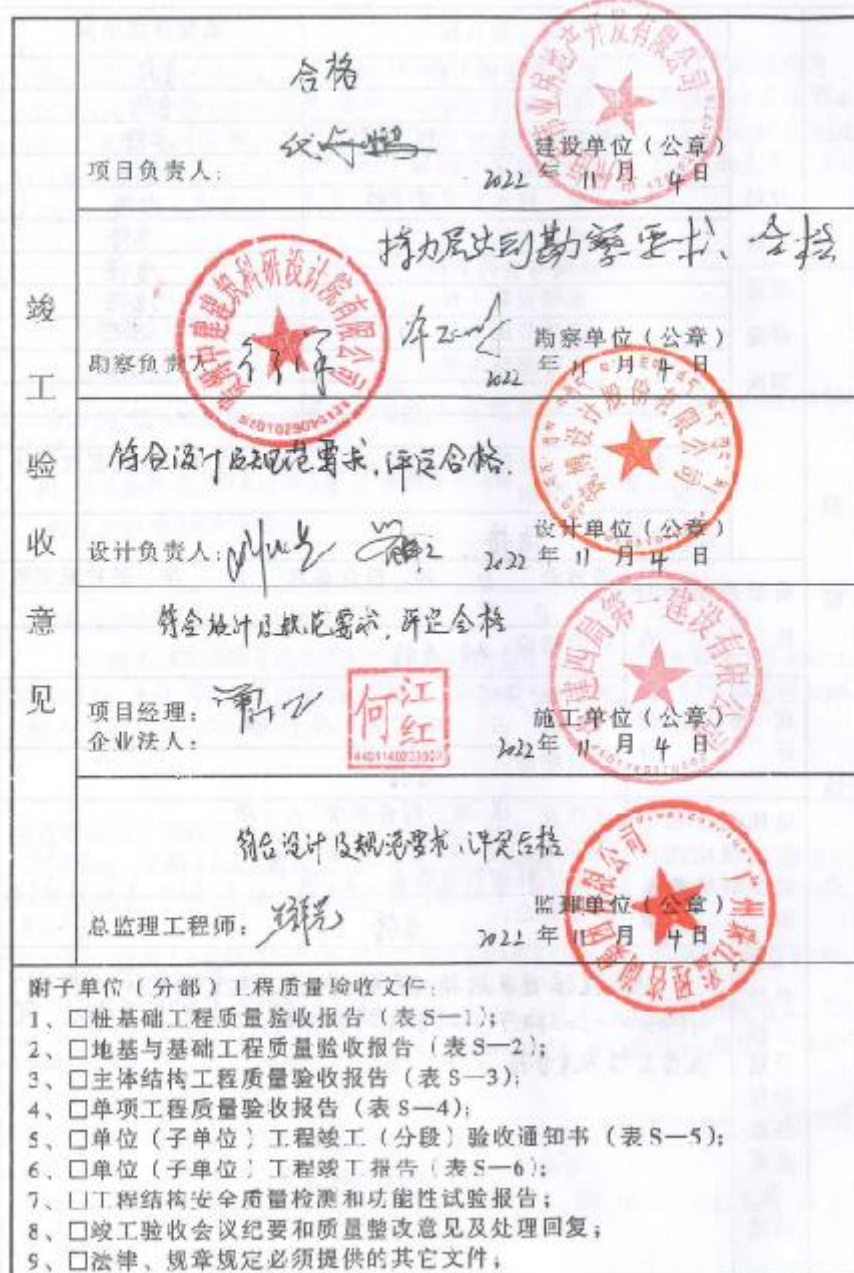 竣工验收意见
合格
项目负责人:
建设单位(公章)
2022 年 11 月 4 日
持力层达到勘察要求、合格
勘察负责人
勘察单位(公章)
2022 年 11 月 4 日
符合设计及规范要求,评定合格.
设计负责人:
设计股份有限公司
设计单位(公章)
2022 年 11 月 4 日
符合设计及规范要求,评定合格
项目经理:
企业法人:
何江红
施工单位(公章)
2022 年 11 月 4 日
符合设计及规范要求,评定合格
总监理工程师:
监理单位(公章)
2022 年 11 月 4 日
附子单位(分部)工程质量验收文件:
1、□桩基础工程质量验收报告(表S—1);
2、□地基与基础工程质量验收报告(表S—2);
3、□主体结构工程质量验收报告(表S—3);
4、□单项工程质量验收报告(表S—4);
5、□单位(子单位)工程竣工(分段)验收通知书(表S—5);
6、□单位(子单位)工程竣工报告(表S—6);
7、□工程结构安全质量检测和功能性试验报告;
8、□竣工验收会议纪要和质量整改意见及处理回复;
9、□法律、规章规定必须提供的其它文件;